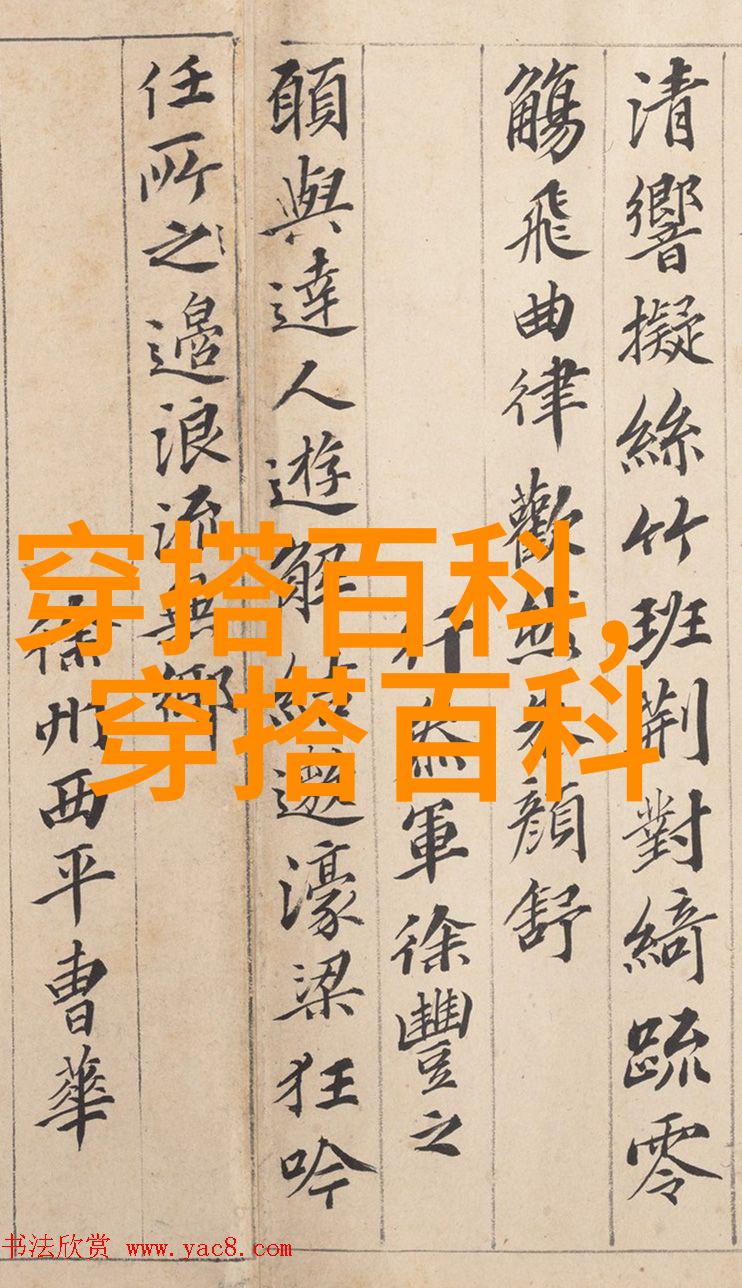 清響擬絲竹班荆對綺疏零
觴飛曲律歡然朱顏舒
行叅軍徐豐之
願與達人遊解結遨濠梁狂吟
任所之邊浪流無鄉
徐州西平曹華
穿搭百科,
穿搭百科
书法欣赏 www.yac8.com